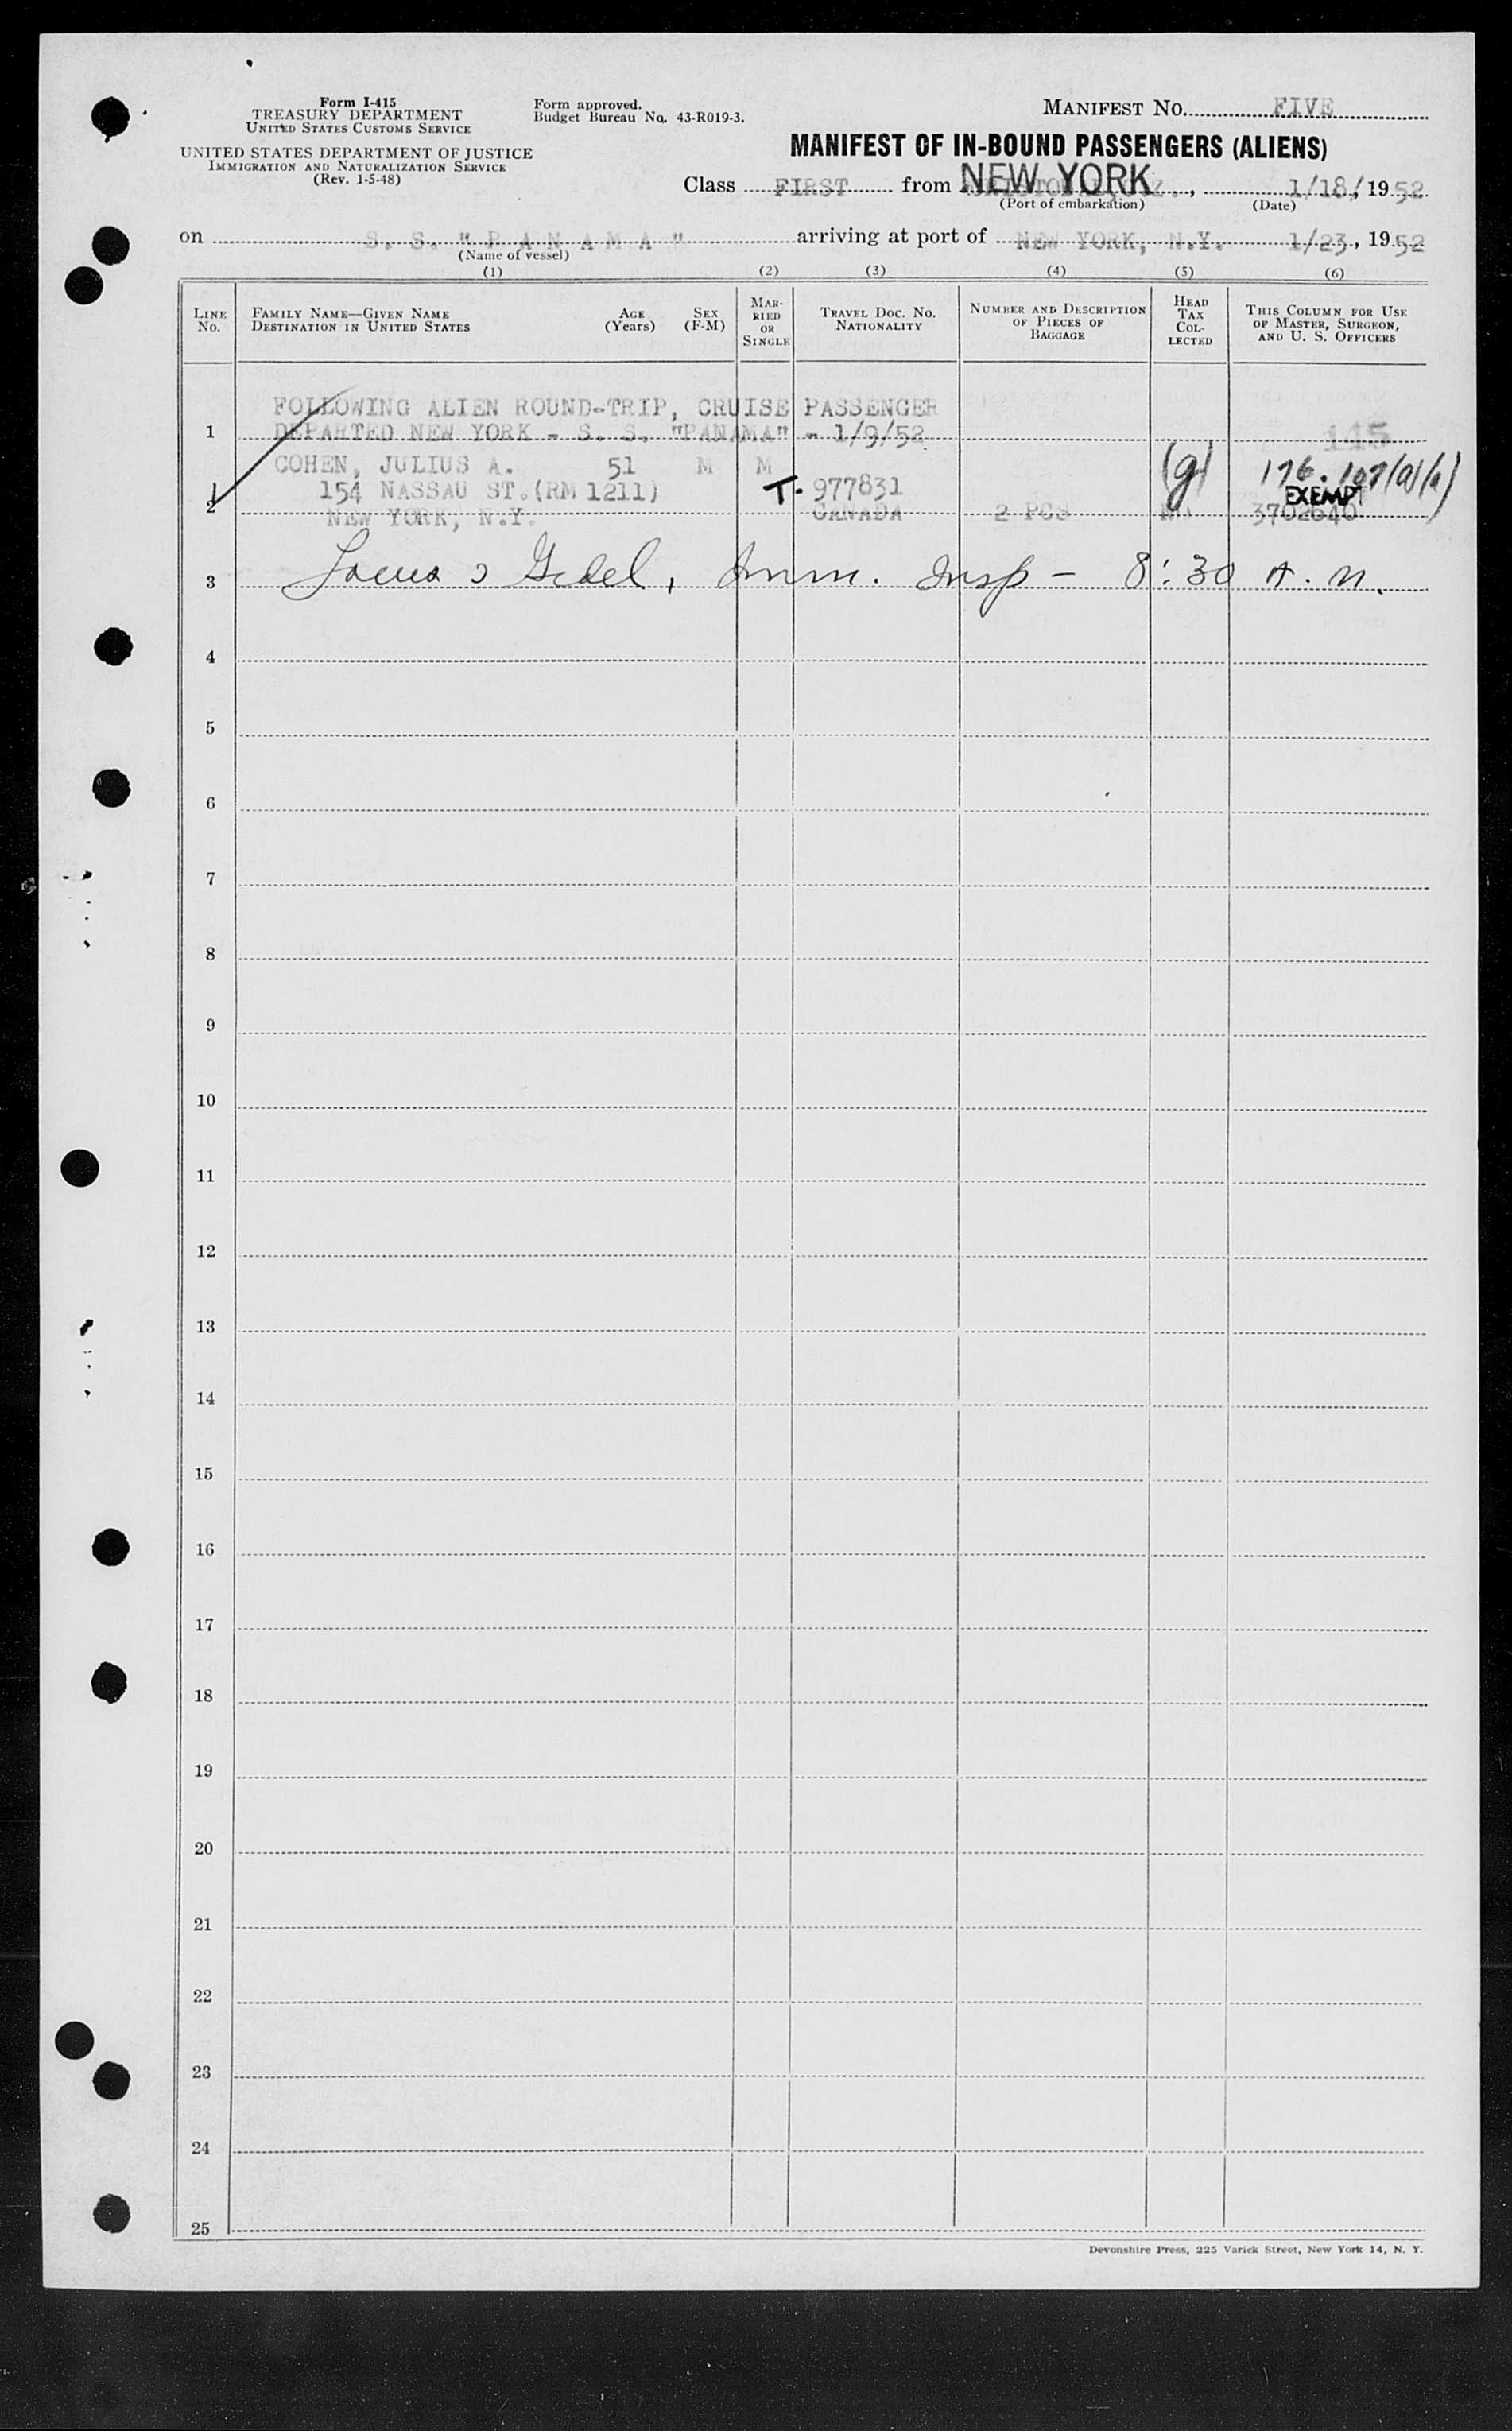 Form I-415
TREASURY DEPARTMENT
UNITED STATES CUSTOMS SERVICE
UNITED STATES DEPARTMENT OF JUSTICE
IMMIGRATION AND NATURALIZATION SERVICE
(Rev. 1-5-48)
Form approved.
Budget Bureau No. 43-R019-3.
MANIFEST NO. FIVE
MANIFEST OF IN-BOUND PASSENGERS (ALIENS)
Class FIRST from NEW YORK, 1/18/, 1952
(Port of embarkation) (Date)
on S. S. "P A N A M A" arriving at port of NEW YORK, N.Y. 1/23, 1952
(Name of vessel)
(1) (2) (3) (4) (5) (6)
LINE NO.
FAMILY NAME—GIVEN NAME
DESTINATION IN UNITED STATES
AGE (Years)
SEX (F-M)
MARRIED OR SINGLE
TRAVEL DOC. NO.
NATIONALITY
NUMBER AND DESCRIPTION
OF PIECES OF
BAGGAGE
HEAD
TAX
COL-
LECTED
THIS COLUMN FOR USE
OF MASTER, SURGEON,
AND U. S. OFFICERS
FOLLOWING ALIEN ROUND-TRIP, CRUISE PASSENGER
1 DEPARTED NEW YORK - S. S. "PANAMA" - 1/9/52 145
COHEN, JULIUS A. 51 M M (g) 176.107(a)
154 NASSAU ST.(RM 1211) T- 977831 EXEMPT
2 NEW YORK, N.Y. CANADA 2 PCS 3702640
3 Gedel, Imm. Insp - 8:30
4
5
6
7
8
9
10
11
12
13
14
15
16
17
18
19
20
21
22
23
24
25
Devonshire Press, 225 Varick Street, New York 14, N. Y.